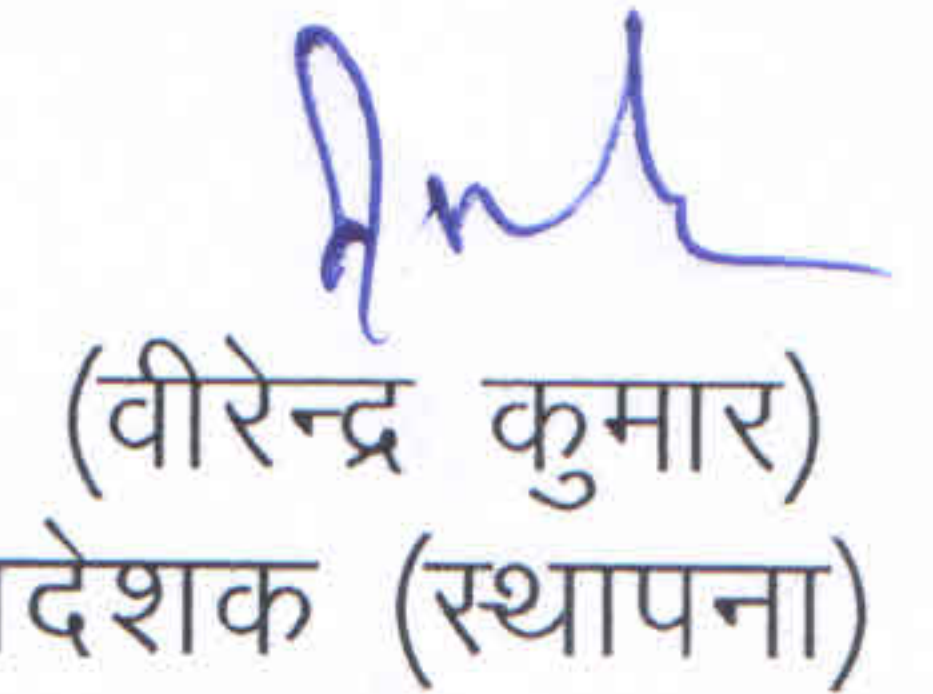 (वीरेन्द्र कुमार)
देशक (स्थापना)